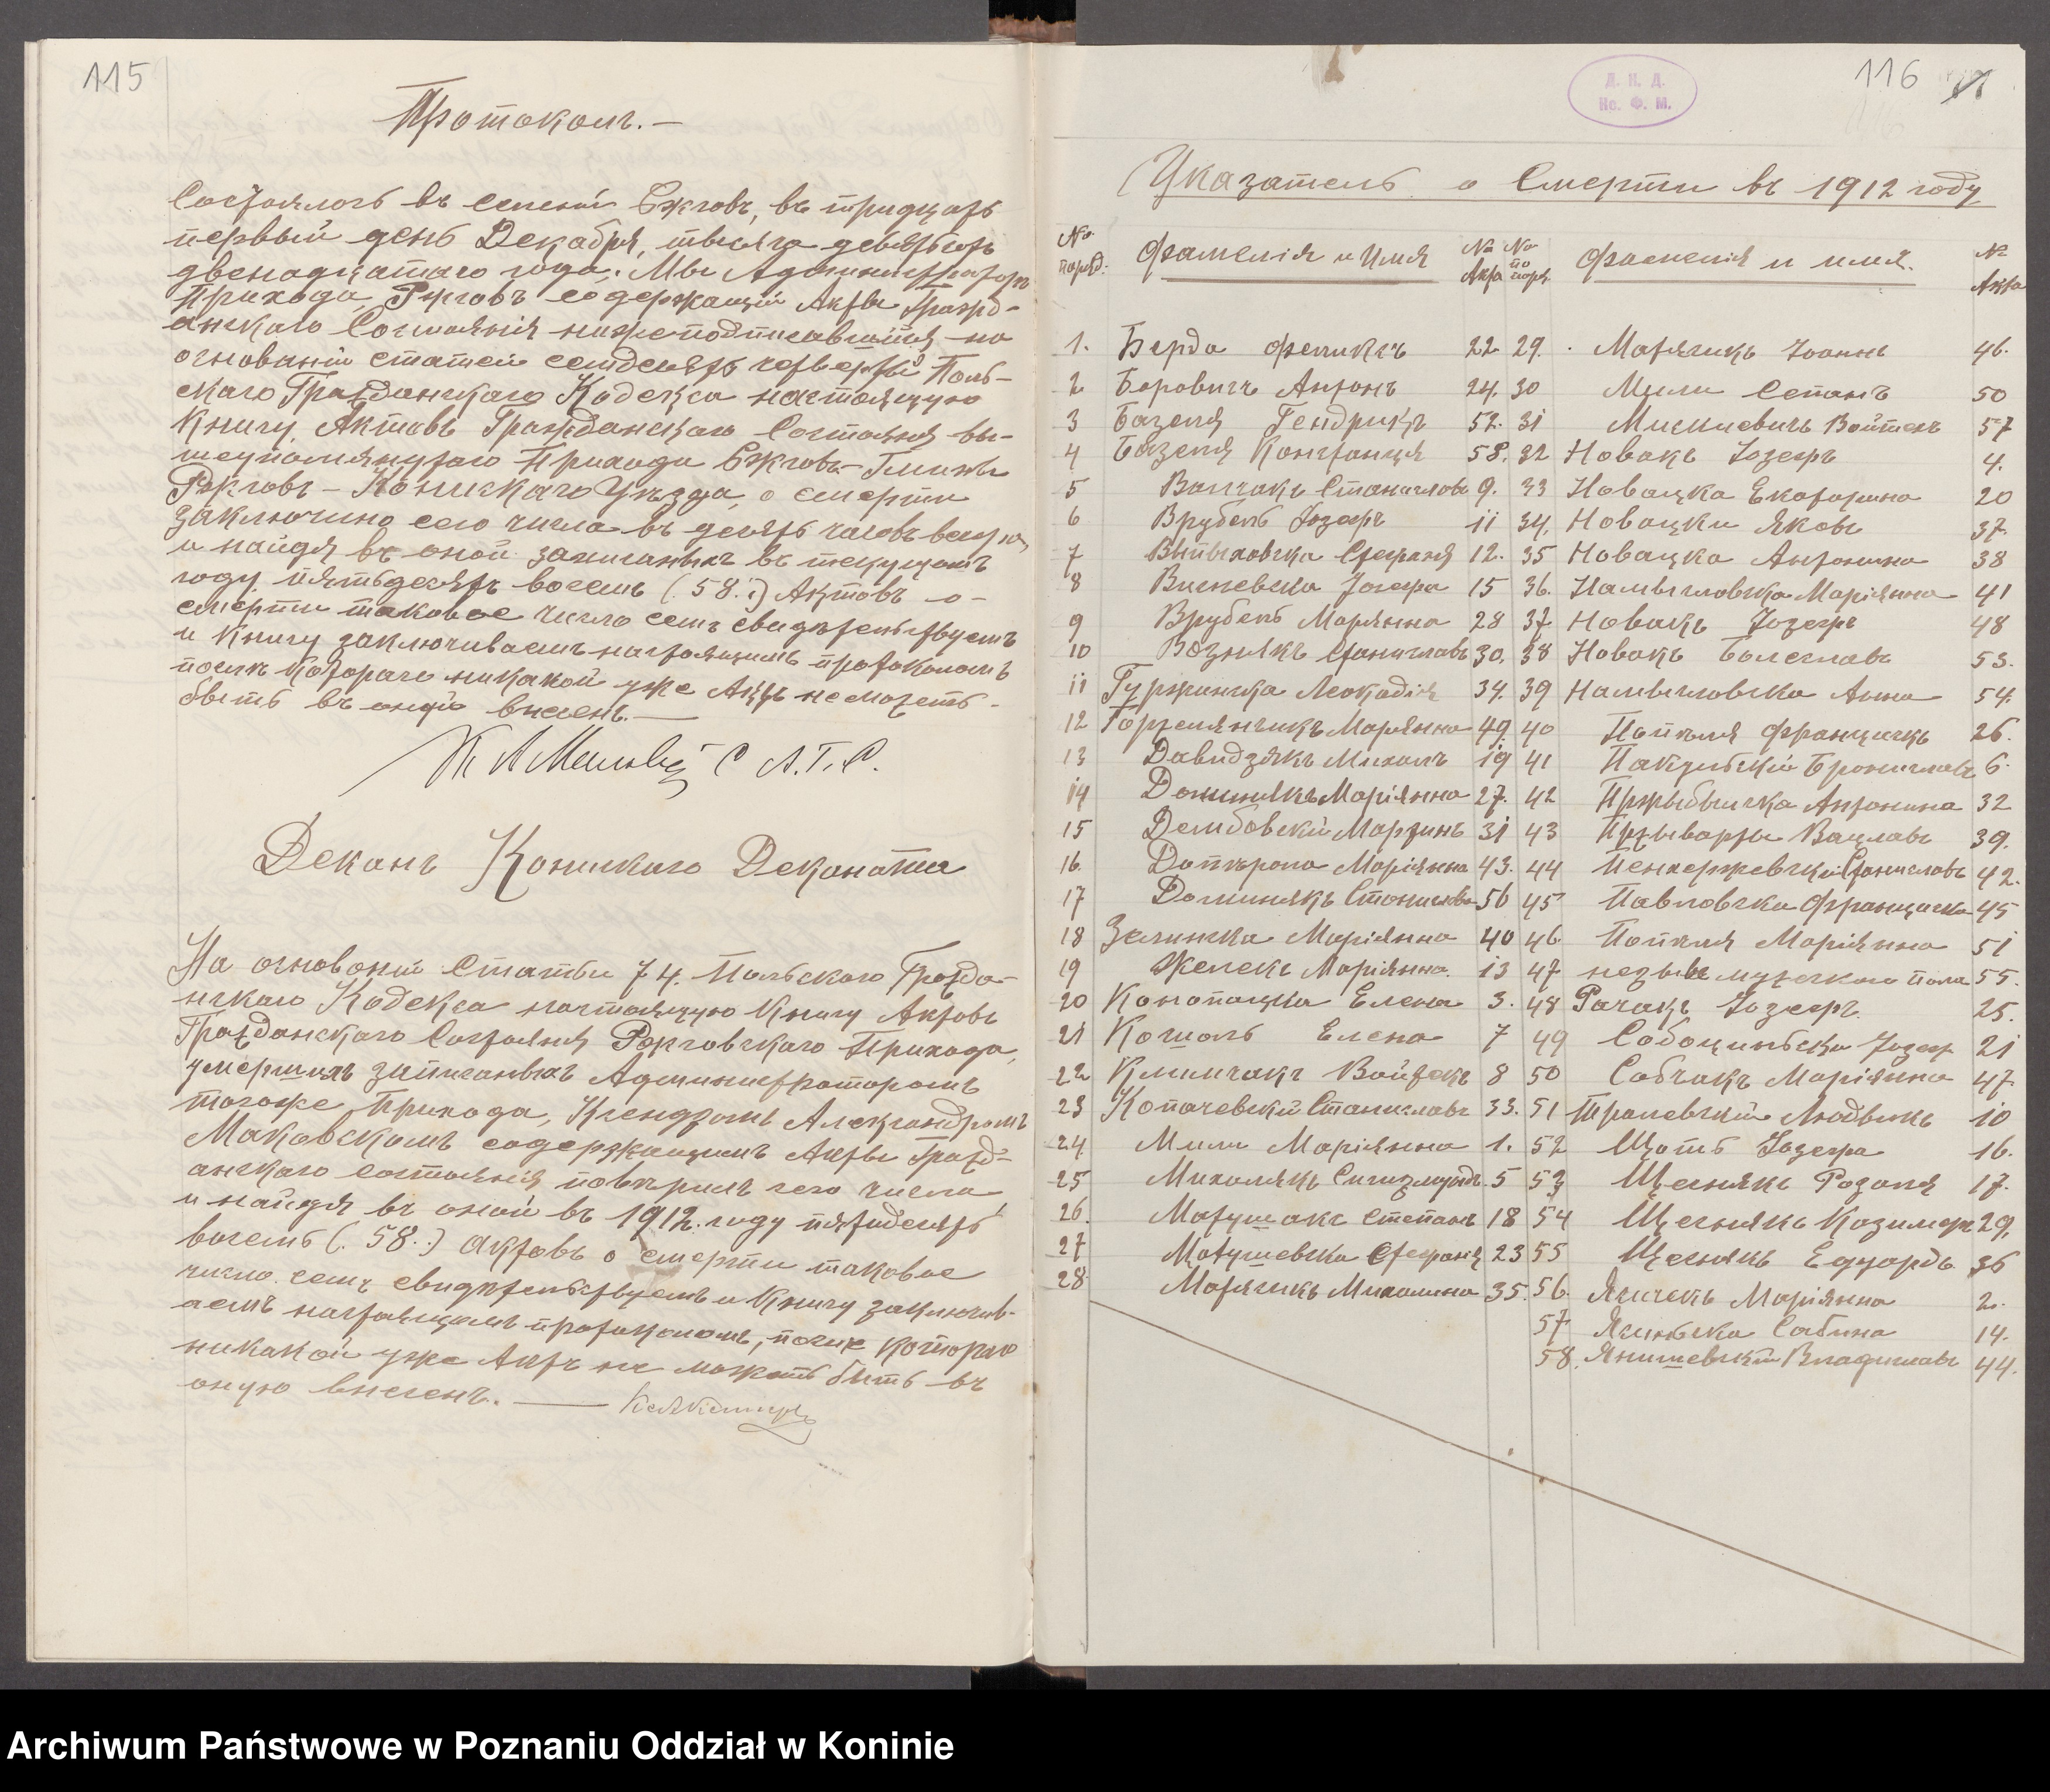 115
Протоколъ.—
Состоялось въ селенiи Ржговъ, въ тридцать
первый день Декабря, тысяча девятьсотъ
двенадцатаго года. Мы Администраторъ
Прихода Ржговъ содержащiй Акты Гражд-
анскаго Состоянiя нижеподписавшiйся на
основанiи статей семдесять четвертый Поль-
скаго Гражданскаго Кодекса настоящую
Книгу Актовъ Гражданскаго Состоянiя вы-
шеупомянутаго Прихода Ржговъ Гмины
Ржговъ – Конинскаго Уѣзда, о смерти
заключино сего числа въ десять часовъ вечера
и найдя въ оной записанныхъ въ текущемъ
году пятьдесятъ восемь (. 58 .) Актовъ о-
смерти таковое число симъ свидѣтельствуетъ
и Книгу заключиваемъ настоящимъ протоколомъ
послѣ котораго никакой уже Актъ не можетъ
быть въ оную внесенъ.—
С А. Г. С.
Деканъ Конинскаго Деканата
На основанiи Статьи 74. Польскаго Гражда-
нскаго Кодекса настоящую Книгу Актовъ
Гражданскаго Состоянiя Ржговскаго Прихода,
умершихъ записанныхъ Администраторомъ
тогоже Прихода, Ксендзомъ Александромъ
Маковскомъ содержащимъ Акты Гражд-
анскаго состоянiя повѣрилъ сего числа
и найдя въ оной въ 1912. году пятьдесятъ
восемь (. 58 .) актовъ о смерти таковое
число симъ свидѣтельствуемъ и Книгу заключив-
аемъ настоящимъ протоколомъ, послѣ котораго
никакой уже Актъ не можетъ быть въ
оную внесенъ. —
116
Д. К. Д.
Не. Ф. М.
Указатель о Смерти въ 1912 году
№ поряд. Фамилiя и Имя № Акта № по поря. Фамилiя и имя. № Акта
1. Берда Феликсъ 22 29. Матячикъ Iоаннъ 46.
2 Боровичъ Антонъ 24. 30 Мили Степанъ 50
3 Базеля Гендрикъ 52. 31 Мискиевичъ Войтехъ 57
4 Базеля Констанця 58. 32 Новакъ Iозефъ 4.
5 Валчакъ Станиславъ 9. 33 Новацка Екатарина 20
6 Врубель Iозефъ 11 34. Новацки Яковъ 37.
7 Выпыховска Стефаня 12. 35 Новацка Антонина 38
8 Висневска Iозефа 15 36. Намысловска Марiянна 41
9 Врубель Марянна 28 37 Новакъ Iозефъ 48
10 Вознякъ Станиславъ 30. 38 Новакъ Болеславъ 53.
11 Гуржинска Леокадiя 34. 39 Намысловска Анна 54.
12 Горжелянчикъ Марянна 49. 40 Попѣля Францискъ 26.
13 Давидзякъ Михалъ 19 41 Пакульскiй Брониславъ 6.
14 Доминякъ Марiянна 27. 42 Пржыбыльска Антонина 32
15 Дембовскiй Мартинъ 31 43 Пржыварты Вацлавъ 39.
16. Допѣрала Марiянна 43. 44 Пенхержевскiй Станиславъ 42.
17 Доминякъ Станислава 56 45 Павловска Францишка 45
18 Зелинска Марiянна 40 46. Попѣля Марiянна 51
19 Желекъ Марiянна. 13 47 незывъ мужескаго пола 55.
20 Конопацка Елена 3. 48 Рачакъ Iозефъ. 25.
21 Кошаль Елена 7 49 Собоциньска Iозефа 21
22 Климчакъ Войтехъ 8 50 Собчакъ Марiянна 47.
23 Копачевскiй Станиславъ 33. 51 Тралевскiй Людвикъ 10
24 Мили Марiянна 1. 52 Щотъ Iозефа 16.
25 Михалякъ Сигизмундъ 5 53 Щеснякъ Розаля 17.
26. Матушакъ Степанъ 18 54 Щеснякъ Казимеръ 29.
27 Матушевска Стефанiя 23 55 Щеснякъ Едуардъ 36
28 Матячикъ Михалина 35. 56. Ячекъ Марiянна 2.
57 Ясиньска Сабина 14.
58. Янишевскiй Владиславъ 44.
Archiwum Państwowe w Poznaniu Oddział w Koninie